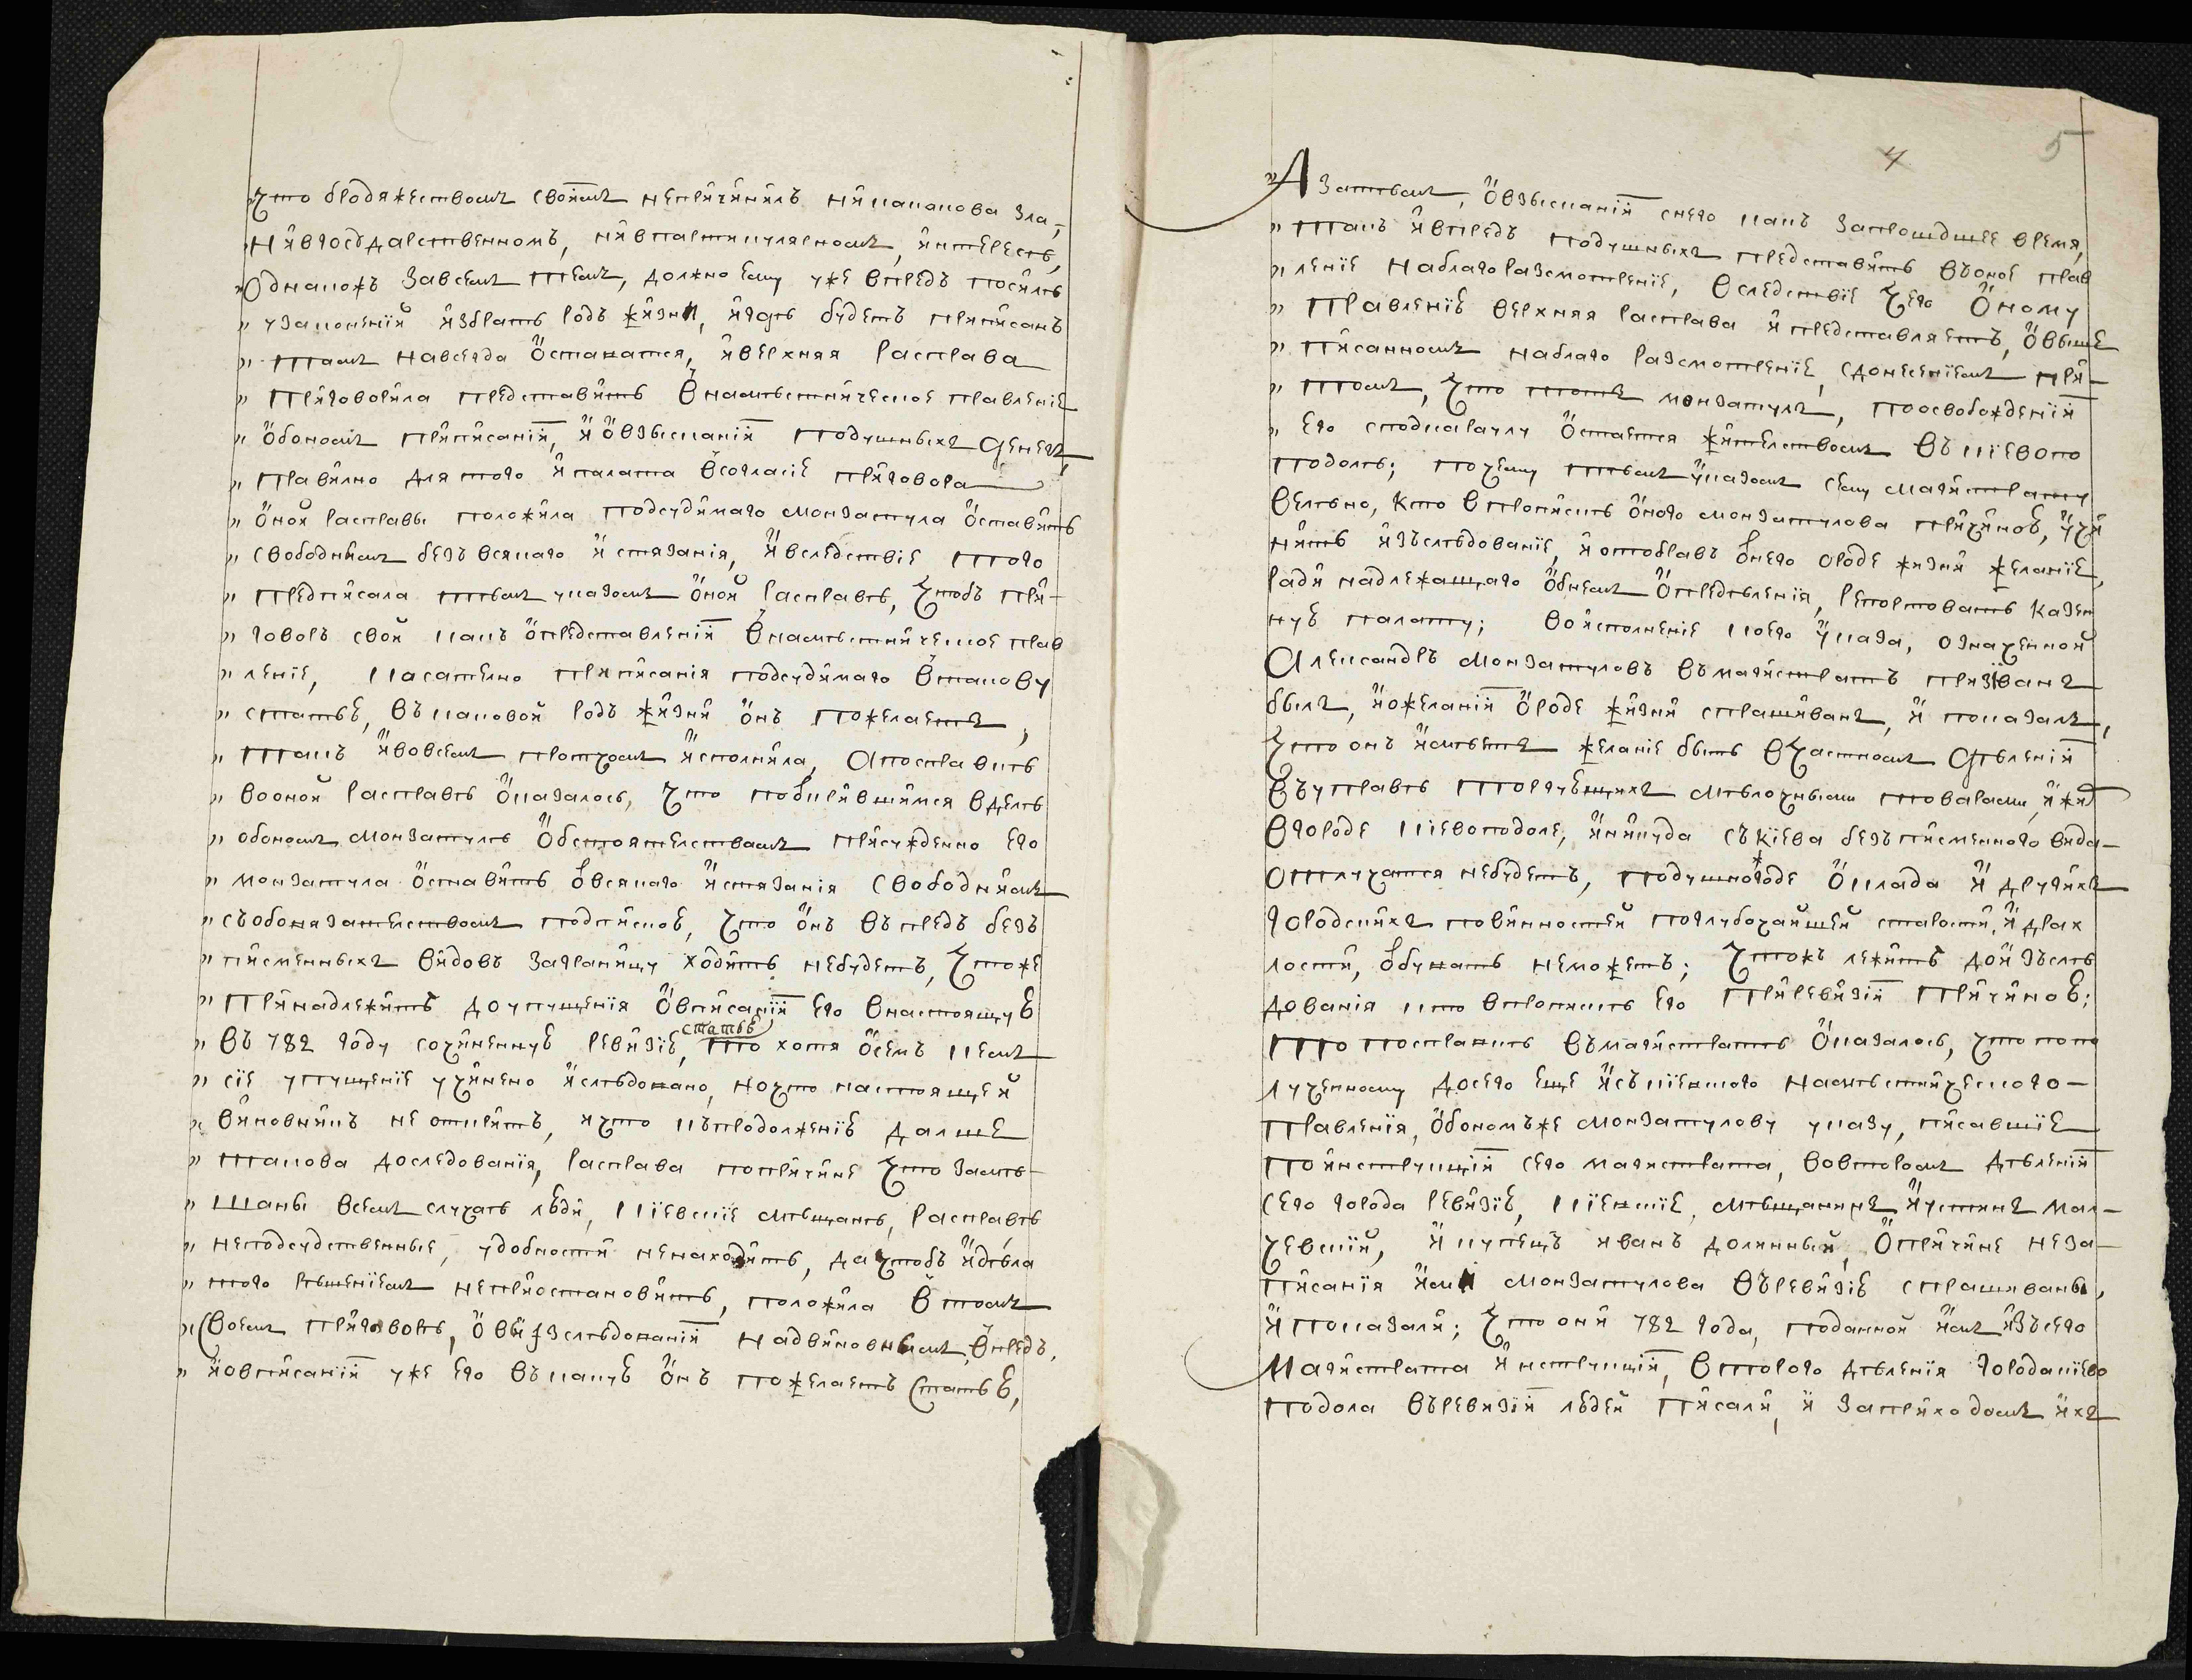 "Что бродяжествомъ своимъ непричинилъ никакакова зла,
"Нивгосударственномъ, нивпартикулярномъ, интересѣ,
"Однакожъ завсемъ темъ, должно ему уже впредъ посилѣ
" узаконений избрать родъ жизни, игдѣ будетъ приписанъ
" тамъ навсегда оставатся, иверхняя расправа
" приговорила представить внамѣстническое правление
" обономъ приписании, и овзыскании подушныхъ денегъ
" правилно для того ипалата всогласие приговора
" оной расправы положила подсудимаго монзатула оставить
" свободнимъ безъ всякаго истязания, ивследствие того
" предписала тѣмъ указомъ оной расправѣ, чтобъ при-
" говоръ свой какъ опредставлении внамѣстническое прав
" ление, касателно приписания подсудимаго втакову
" статью, въ каковой родъ жизни онъ пожелаетъ,
" такъ ивовсемъ протчомъ исполнила, Апосправкѣ
" вооной расправѣ оказалось, что пооткрившимся вделѣ
" обономъ монзатулѣ обстоятелствамъ присужденно его
" монзатула оставить отвсякаго истязания свободнимъ
" съобовязателствомъ подпискою, что онъ въ предъ безъ
" писменныхъ видовъ заграницу ходить небудетъ, чтоже
" принадлежитъ доупущения овписании его внастоящую
" въ 782 году сочиненную ревизию, то хотя осемъ кемъ
статье
" сие упущение учинено ислѣдовано, ночто настоящей
" виновникъ не открить, ичто къпродолжению далше
" такова доследования, расправа попричине что замѣ-
" шаны всемъ случаѣ люди, киевские мѣщанѣ, расправѣ
" неподсудственные, удобности ненаходитъ, дачтобъ идѣла
" того рѣшениемъ неприостановить, положила втомъ
"Своемъ приговорѣ, овизслѣдовании надвиновнымъ, впредъ,
" иовписании уже его въ какую онъ пожелаетъ статью,
4 5
"А затѣмъ, овзыскании снего какъ запрошедшее время,
" такъ ивпредъ подушныхъ представить въоное прав
" ление наблагоразсмотрение, вследствие чего оному
" Правлению верхняя расправа ипредставляетъ, овыше
" писанномъ наблаго разсмотрение, сдонесениемъ при-
" томъ, что тотъ монзатулъ, поосвобождении
" его сподкараулу остается жителствомъ въ киевопо
подолѣ; почему тѣмъ указомъ сему магистрату
велѣно, кто впропискѣ оного монзатулова причиною, учи
нить изъслѣдование, иотобравъ отнего ороде жизни желание,
ради надлежащаго обнемъ опредѣления, репортовать казен
ную палату; воисполнение коего указа, означенной
Александръ монзатуловъ въмагистратъ призиванъ
былъ, иожелании ороде жизни спрашиванъ, и показалъ,
что онъ имѣетъ желание быть вчастномъ дѣлении
въуправѣ торгующихъ мѣлочными товарами, ижит
вгороде киевоподоле, иникуда съкиева безъписменного вида-
отлучатся небудетъ, подушногоже оклада и другихъ
городскихъ повинностей поглубочайшей старости, и драх
лости, отбувать неможетъ; чтожъ лежитъ доизъслѣ
дования кто впропискѣ его приревизии причиною;
то посправкѣ вмагистратѣ оказалось, что попо
лученному досего еще исъкиевского намѣстнического-
правления, обономъже монзатулову указу, писавшие
поинструкции сего магистрата, вовторомъ дѣлении
сего города ревизию, киевские, мѣщанинъ иустинъ мал-
чевский, и купецъ иванъ долинный, опричине неза-
писания ими монзатулова въревизию спрашиваны,
ипоказали; что они 782 года, поданной имъ изъсего
магистрата инструкции, второго дѣления городакиево
подола въревизии людей писали, и заприходомъ ихъ